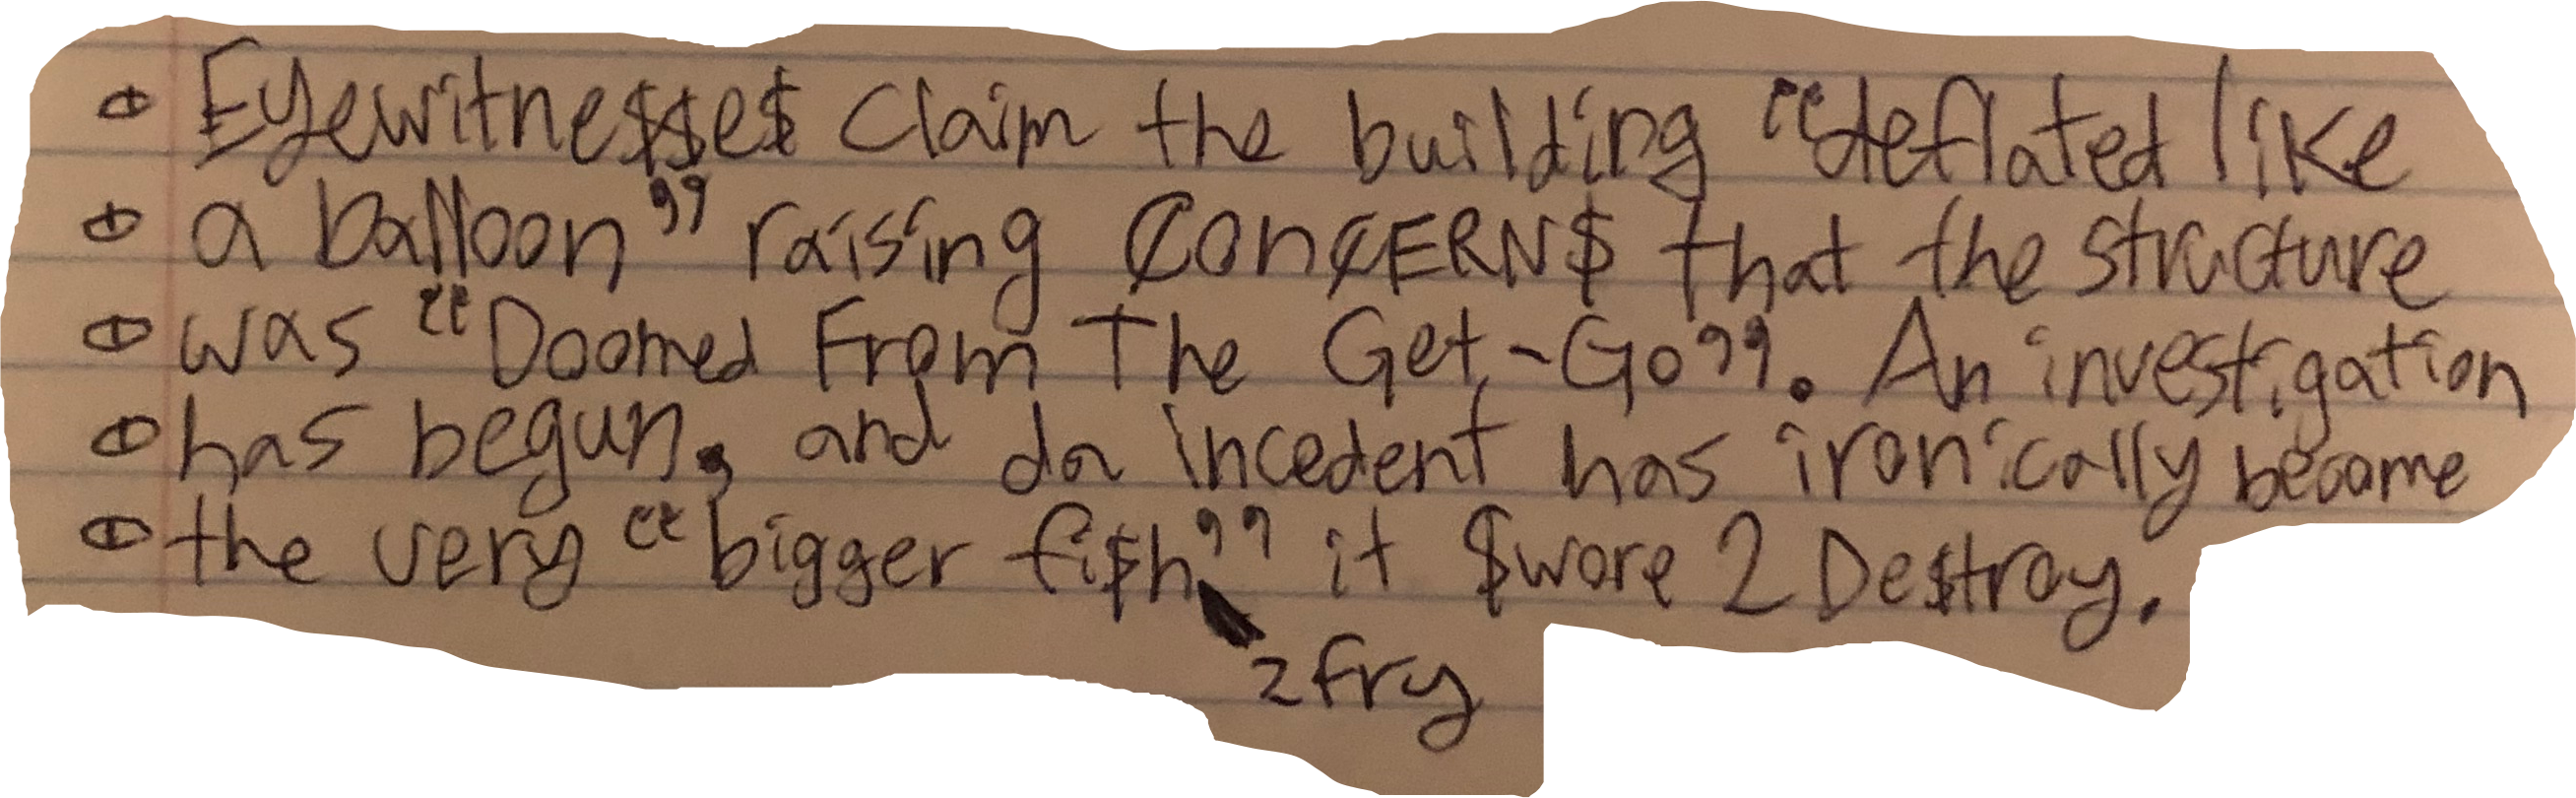 ⦶ Eyewitne$$e$ Claim the building "deflated like
⦶ a balloon" raising ₵on₵ERN$ that the structure
⦶ was "Doomed From The Get-Go". An investigation
⦶ has begun, and da incedent has ironically become
⦶ the very "bigger fi$h" it $wore 2 De$troy.
2 fry